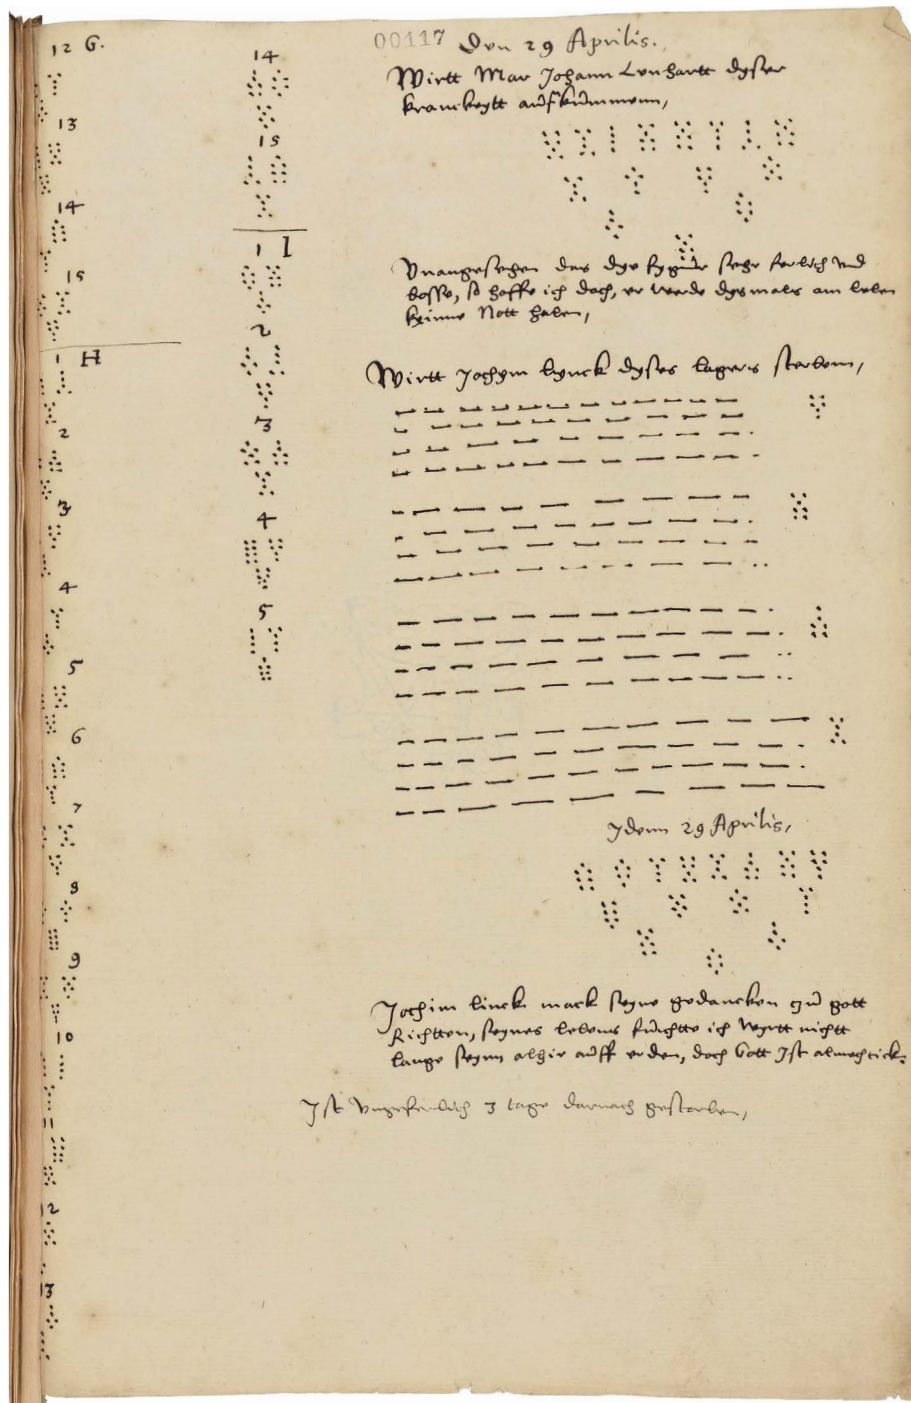 12 G.
13
14
15
1 H
2
3
4
5
6
7
8
9
10
11
12
13
14
15
1 I
2
3
4
5
00117
Den 29 Aprilis.
Wirtt Mar Johann Lenhartt dyser
kranckeytt aufkummenn,
Unangesehen das dye fygur sehr ferlich und
bosse, so hoffe ich doch, er werde dysmals am leben
keinne Nott haben,
Wirtt Jochym lynck dyses lagers sterbenn,
Idem 29 Aprilis,
Jochim linck mack seyne gedancken zu gott
Richtten, seynes lebens furchtte ich Wyrtt nichtt
lange seynn alhir auff erden, doch Gott Ist almechtick.
Ist Ungeferlich 3 tage darnach gestorben,